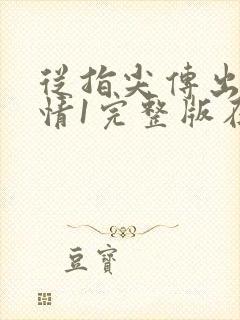 從指尖傳出
情1完整版在
豆寶